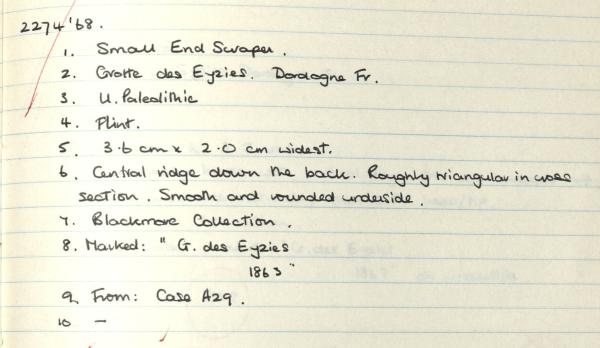 2274'68.
1. Small End Scraper.
2. Grotte des Eyzies. Dordogne Fr.
3. U. Paleolithic
4. Flint.
5. 3.6 cm x 2.0 cm widest.
6. Central ridge down the back. Roughly triangular in cross
section. Smooth and rounded underside.
7. Blackmore Collection.
8. Marked: "G. des Eyzies
1863"
9. From: Case A29.
10 -